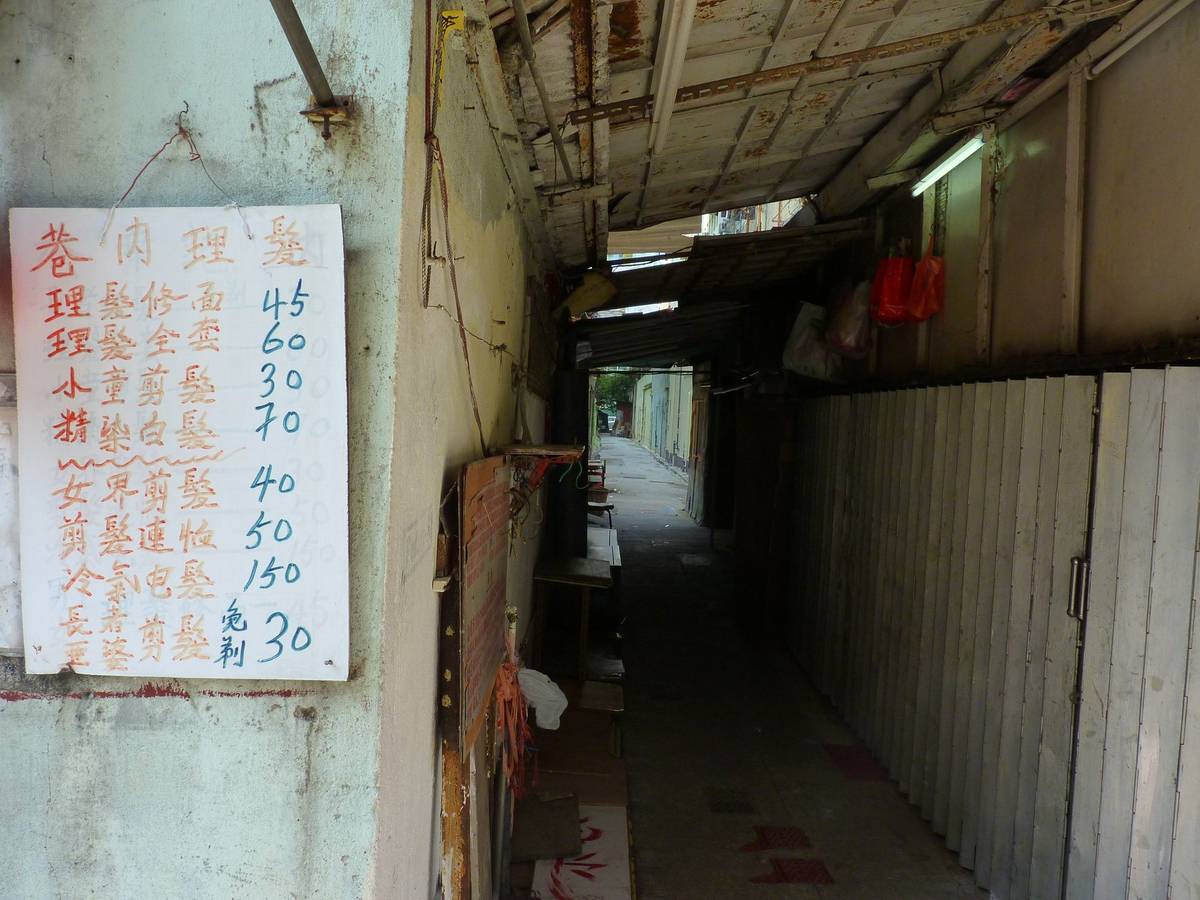 巷内理髮
理髮修面 45
理髮全套 60
小童剪髮 30
精染白髮 70
女界剪髮 40
剪髮連恤 50
冷氣电髮 150
長者剪髮 免剃 30